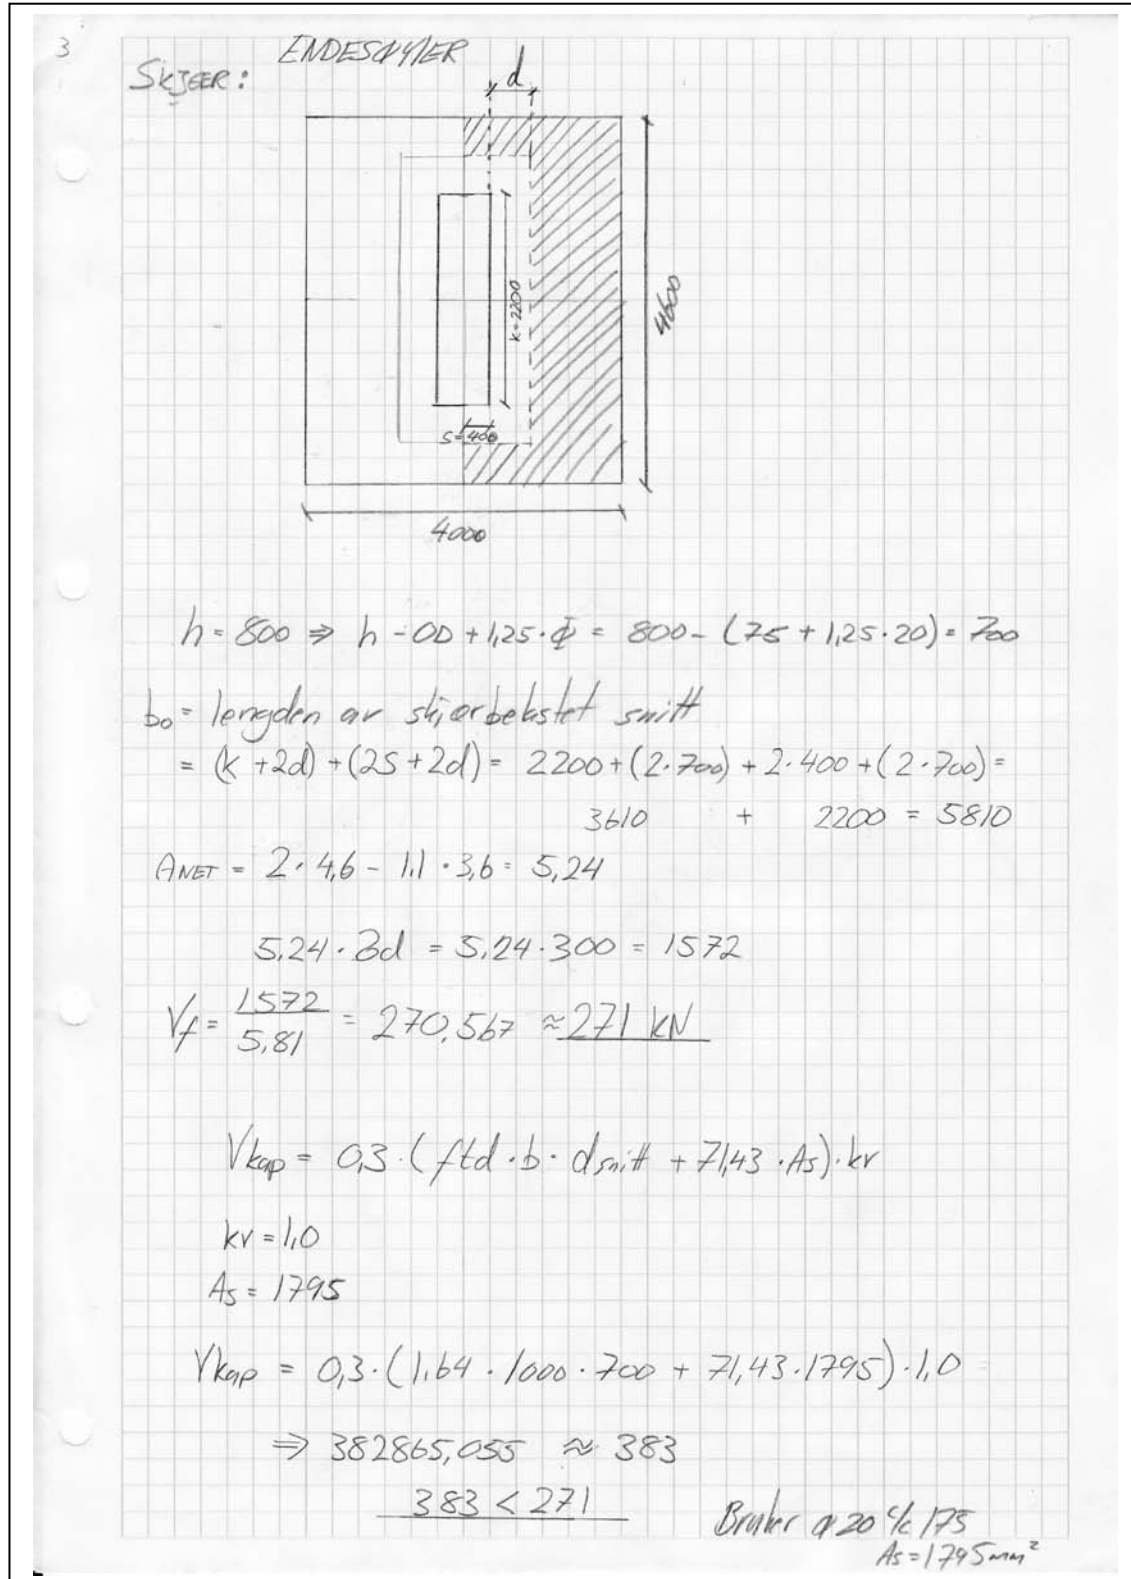 3
ENDESØYLER
SKJÆR:
d
k=2200
4600
S=400
4000
h = 800 ⇒ h - OD + 1,25 · Φ = 800 - (75 + 1,25 · 20) = 700
bo = lengden av skjærbelastet snitt
= (k + 2d) + (2S + 2d) = 2200 + (2 · 700) + 2 · 400 + (2 · 700) =
3610 + 2200 = 5810
ANET = 2 · 4,6 - 1,1 · 3,6 = 5,24
5,24 · δd = 5,24 · 300 = 1572
Vf = 1572 / 5,81 = 270,567 ≈ 271 kN
Vkap = 0,3 · (ftd · b · dsnitt + 71,43 · As) · kv
kv = 1,0
As = 1795
Vkap = 0,3 · (1,64 · 1000 · 700 + 71,43 · 1795) · 1,0
⇒ 382865,055 ≈ 383
383 < 271
Bruker ø 20 c/c 175
As = 1795 mm²